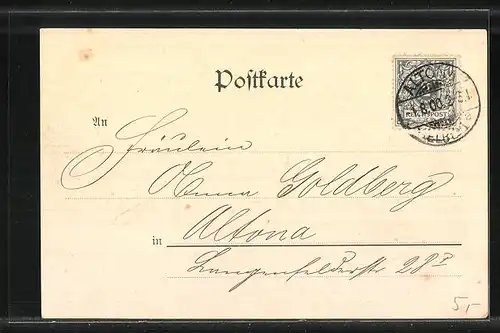 Postkarte
ALTONA
1.6.00.
REICHSPOST
An
Fräulein
Anna Goldberg
in Altona
Langenfelderstr 28
5,-